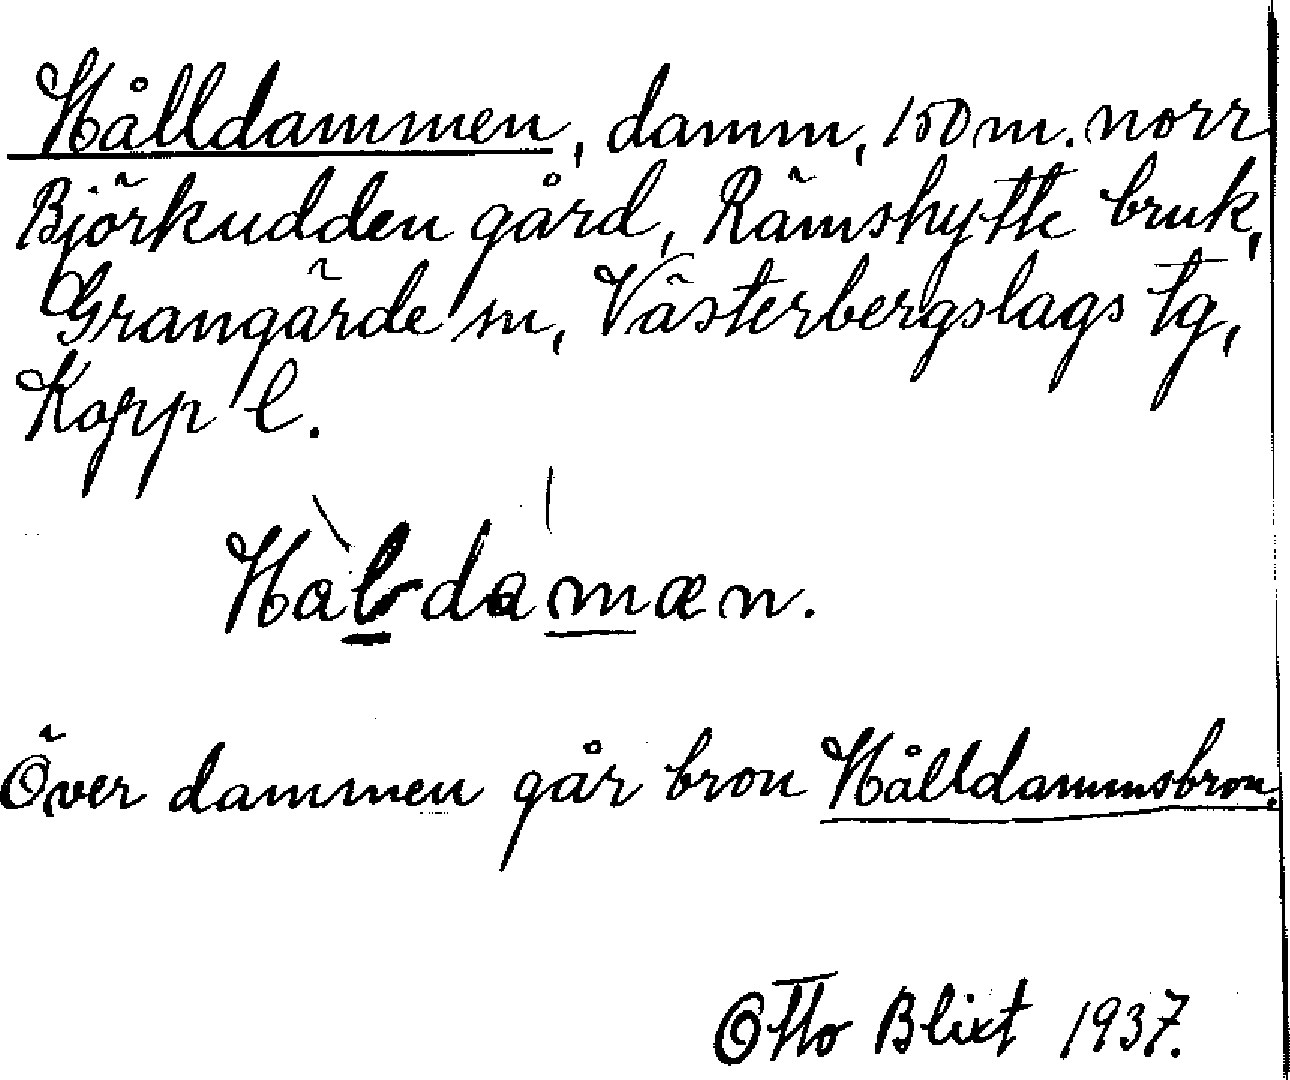 Hålldammen, damm, 150 m. norr
Björkudden gård, Rämshytte bruk,
Grangärde sn, Västerbergslags tg,
Kopp l.
Håldamæn.
Över dammen går bron Hålldammsbron.
Otto Blixt 1937.